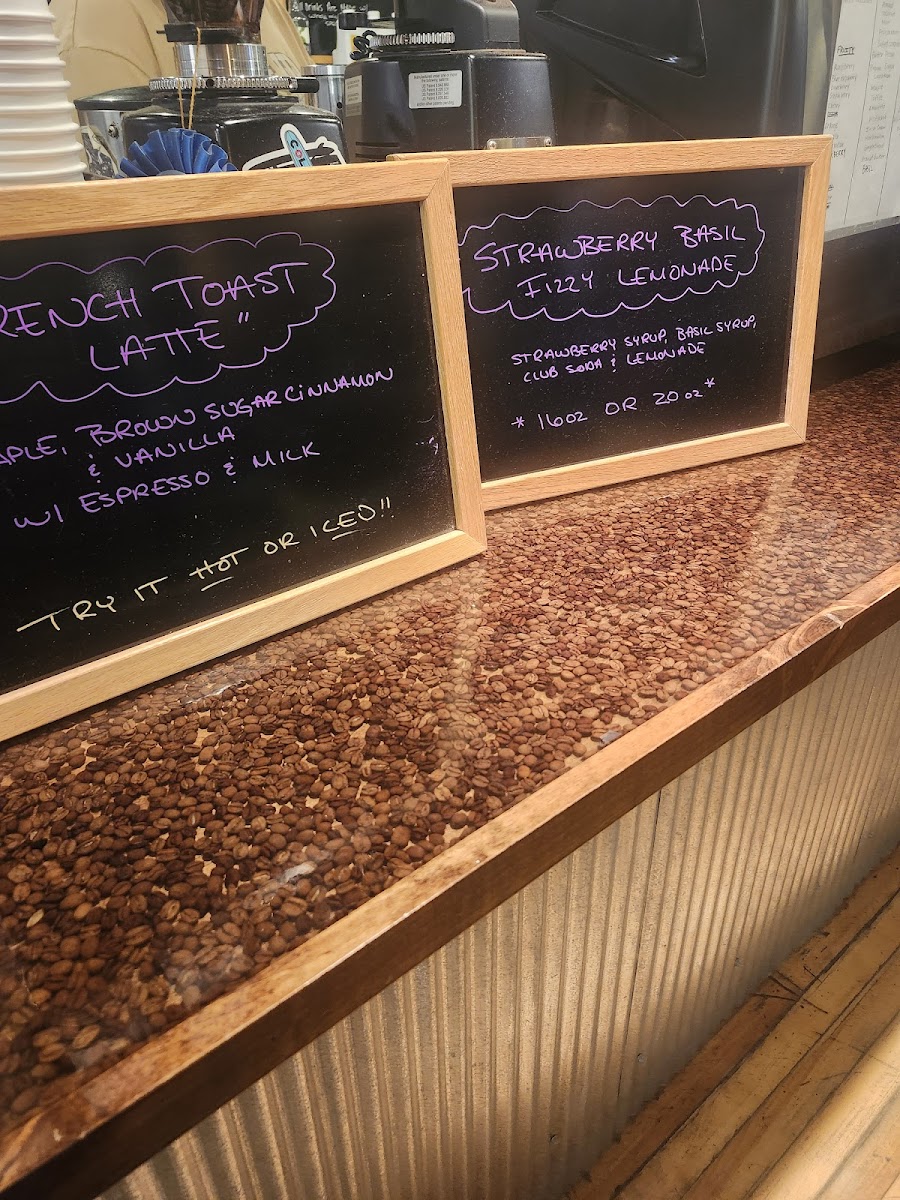 RENCH TOAST
LATTE"
APLE, BROWN SUGAR CINNAMON
& VANILLA
W/ ESPRESSO & MILK
TRY IT HOT OR ICED!!
STRAWBERRY BASIL
FIZZY LEMONADE
STRAWBERRY SYRUP, BASIL SYRUP,
CLUB SODA & LEMONADE
* 16oz OR 20oz *